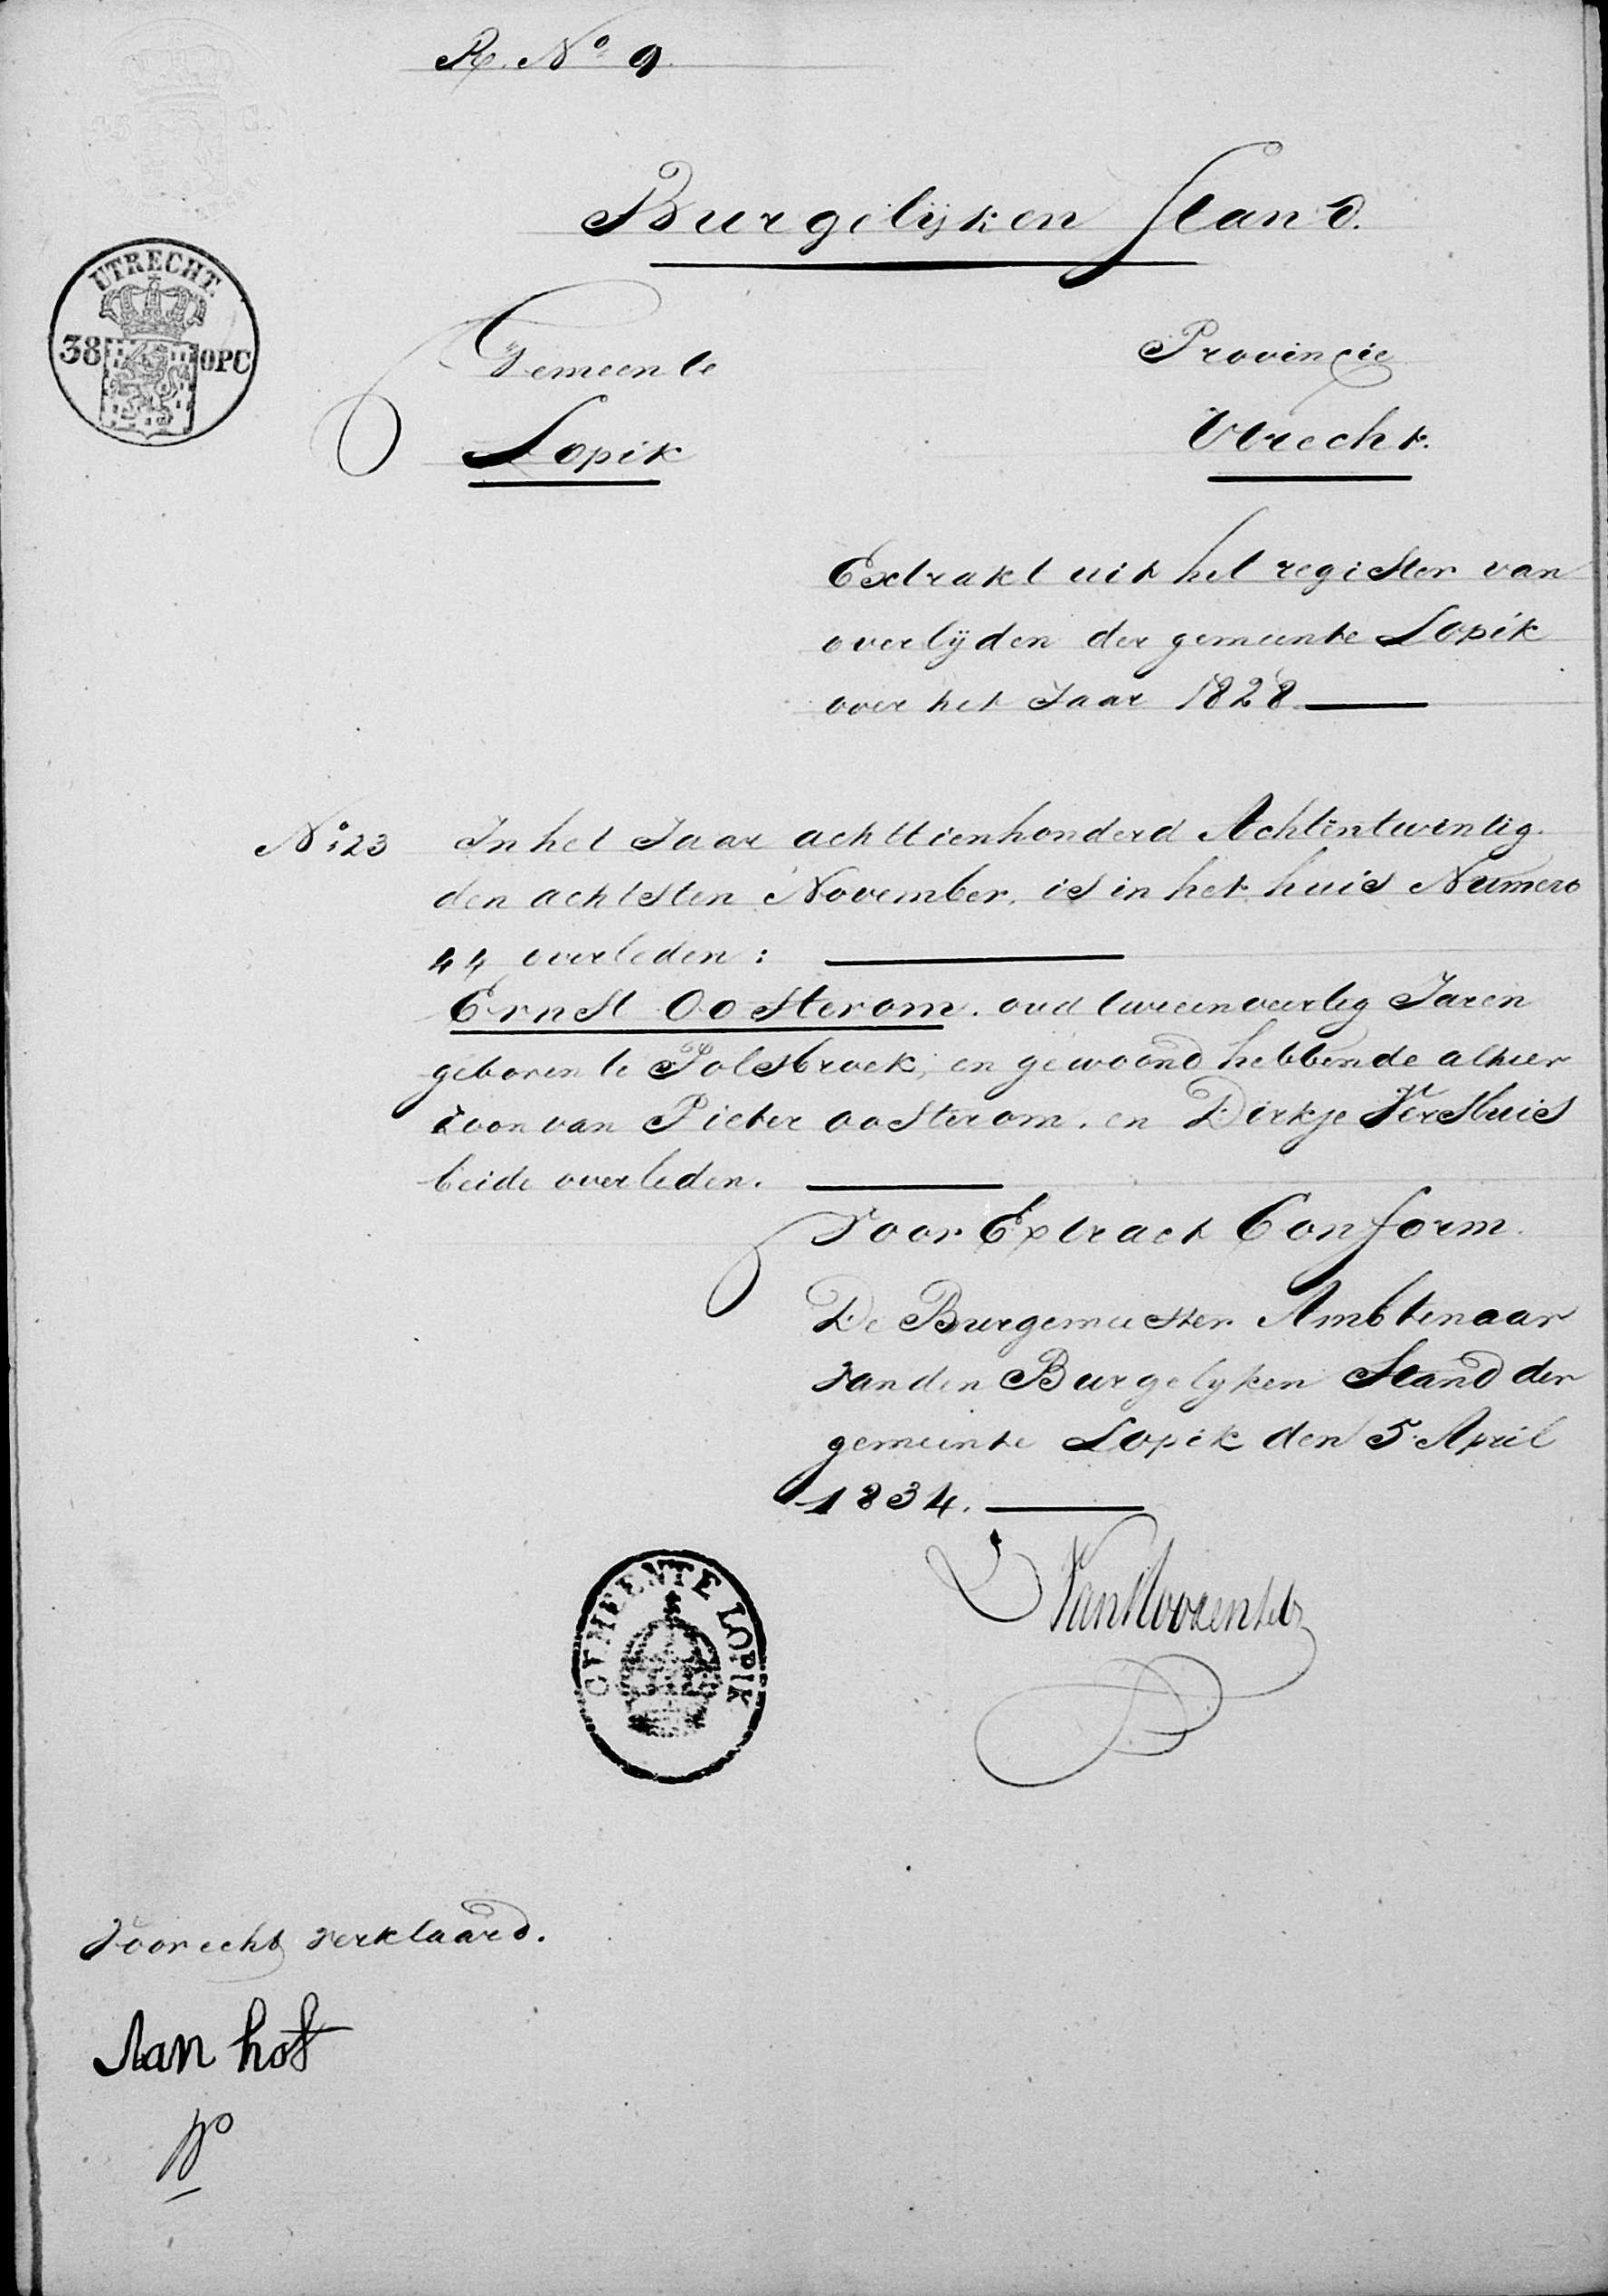 R. No 9.
Burgelijken Stand.
UTRECHT.
38 OPC
Gemeente
Lopik
Provincie
Utrecht.
Extrakt uit het register van
overlijden der gemeente Lopik
over het Jaar 1828
No: 23 In het Jaar achttienhonderd Achtentwintig.
den achtsten November. is in het huis Numero
44 overleden:
Ernst Oosterom. oud tweenveertig Jaren
geboren te Polsbroek, en gewoond hebbende alhier
zoon van Pieter oosterom. en Dirkje Versluis
beide overleden.
Voor Extract Conform.
De Burgemeester Ambtenaar
van den Burgelyken Stand der
gemeente Lopik den 5 April
1834.
GEMEENTE LOPIK
Voor echt verklaard.